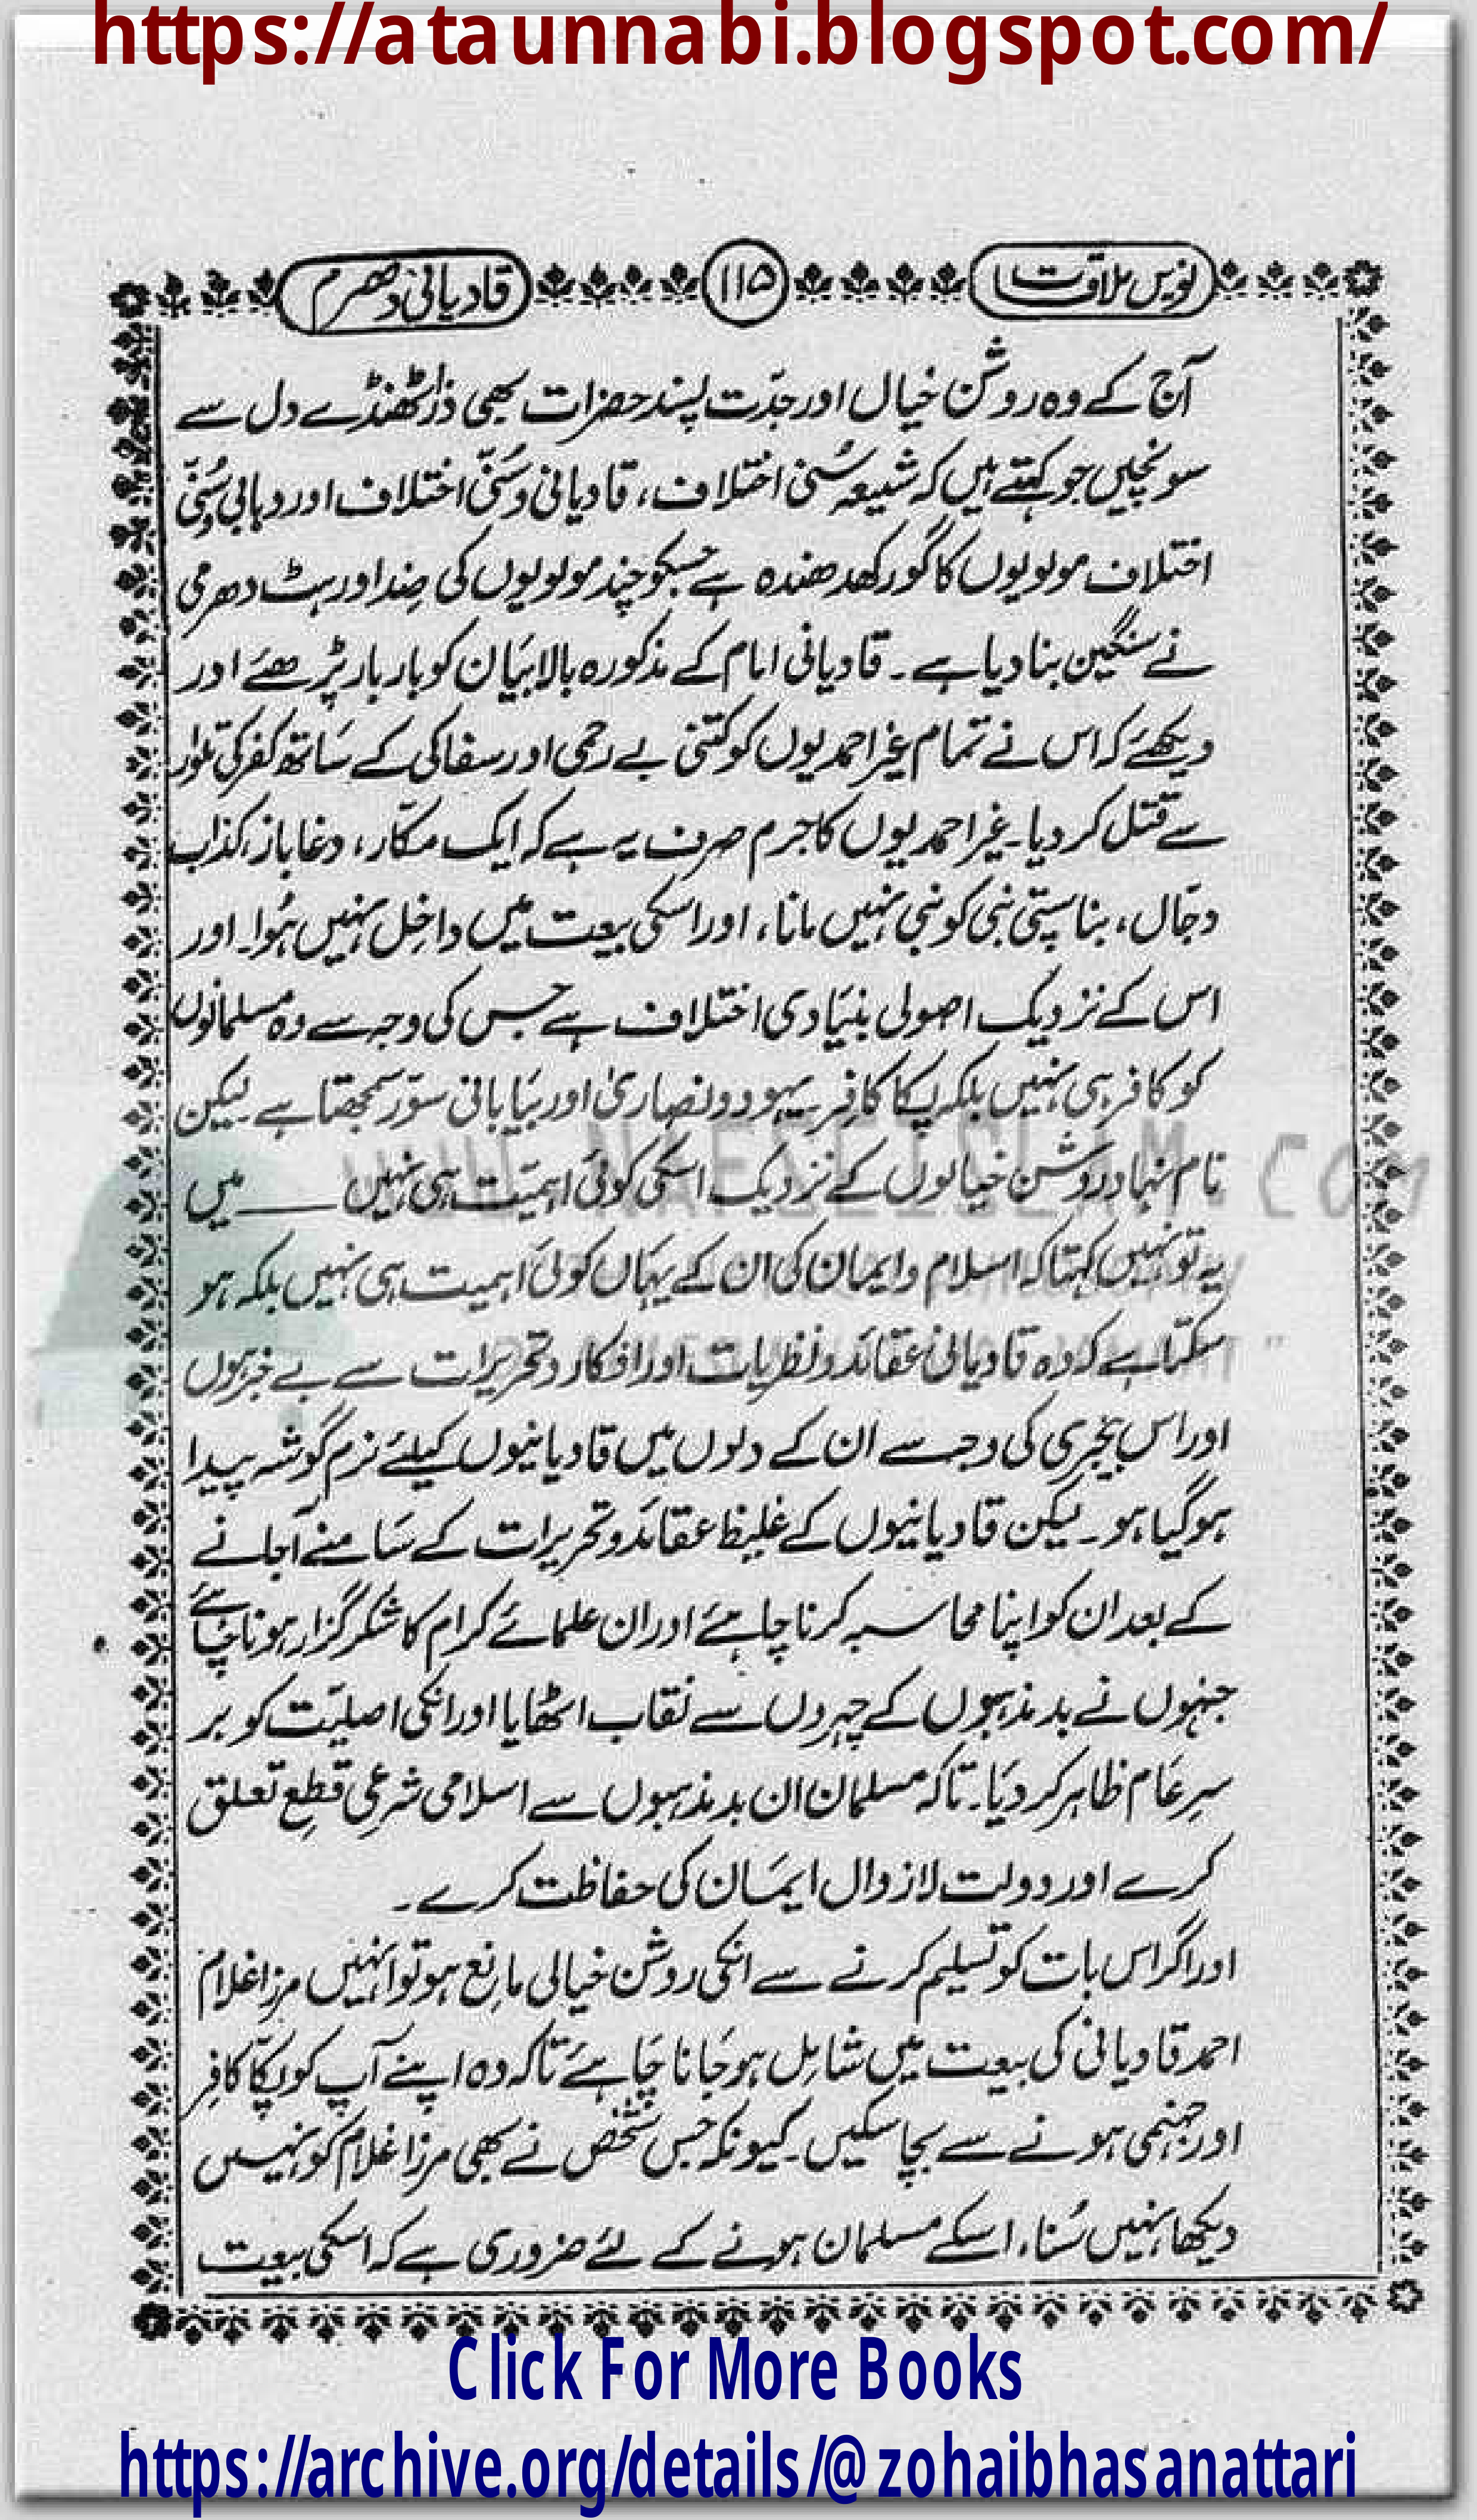 https://ataunnabi.blogspot.com/
نویں ملاقات ۱۱۵ قادیانی دھرم
آج کے وہ روشن خیال اور جدّت پسند حضرات بھی ذرا ٹھنڈے دل سے
سونچیں جو کہتے ہیں کہ شیعہ سُنی اختلاف، قادیانی و سُنّی اختلاف اور وہابی و سُنّی
اختلاف مولویوں کا گورکھ دھندہ ہے جسکو چند مولویوں کی ضِد اور ہٹ دھرمی
نے سنگین بنا دیا ہے۔ قادیانی امام کے مذکورہ بالا بیَان کو بار بار پڑھئے اور
دیکھئے کہ اس نے تمام غیر احمدیوں کو کتنی بے رحمی اور سفاکی کے سَاتھ کفر کی تلوار
سے قتل کر دیا۔ غیر احمدیوں کا جرم صرف یہ ہے کہ ایک مکّار، دغاباز، کذاب
دجّال، بناسپتی نبی کو نبی نہیں مانا، اور اسکی بیعت میں داخِل نہیں ہُوا۔ اور
اس کے نزدیک اصولی بنیَادی اختلاف ہے جس کی وجہ سے وہ مسلمانوں
کو کافر ہی نہیں بلکہ پکا کافِر۔ یہود و نصاریٰ اور بیَابانی سوّر سمجھتا ہے۔ لیکن
نام نہاد روشن خیالوں کے نزدیک اسکی کوئی اہمیّت ہی نہیں ــــــ میں
یہ تو نہیں کہتا کہ اسلام و ایمان کی ان کے یہَاں کوئی اَہمیت ہی نہیں بلکہ ہو
سکتا ہے کہ وہ قادیانی عقائد و نظریات اور افکار و تحریرات سے بے خبر ہوں
اور اس بیخبری کی وجہ سے ان کے دلوں میں قادیانیوں کیلئے نرم گوشہ پیدا
ہو گیا ہو۔ لیکن قادیانیوں کے غلیظ عقائد و تحریرات کے سَامنے آجانے
کے بعد ان کو اپنا محاسبہ کرنا چاہئے اور ان علمائے کرام کا شکر گزار ہونا چاہئے
جنہوں نے بد مذہبوں کے چہروں سے نقاب اٹھایا اور انکی اصلیّت کو بر
سرِ عَام ظاہر کر دیَا۔ تاکہ مسلمان ان بد مذہبوں سے اسلامی شرعی قطعِ تعلق
کرے اور دولت لازوال ایمَان کی حفاظت کرے۔
اور اگر اس بات کو تسلیم کرنے سے انکی روشن خیالی مانِع ہو تو انہیں مرزا غلام
احمد قادیانی کی بیعت میں شامِل ہو جَانا چَاہئے تاکہ وہ اپنے آپ کو پکّا کافِر
اور جہنمی ہونے سے بچا سکیں۔ کیونکہ جس شخص نے بھی مرزا غلام کو نہیں
دیکھا نہیں سُنا، اسکے مسلمان ہونے کے لئے ضروری ہے کہ اسکی بیعت
Click For More Books
https://archive.org/details/@zohaibhasanattari